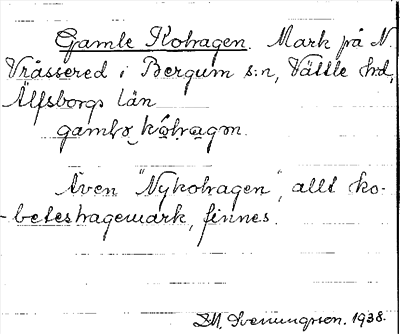 Gamle Kohagen. Mark på N.
Vråssered i Bergum s:n, Vättle hd,
Älfsborgs län
gamlə kọ́hagən.
Även "Nykohagen", allt ko-
beteshagemark, finnes.
Svenungsson. 1938.